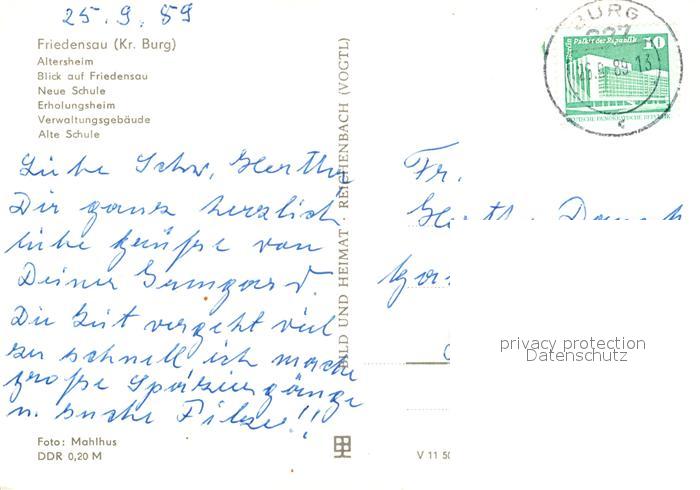 25.9.89
Friedensau (Kr. Burg)
Altersheim
Blick auf Friedensau
Neue Schule
Erholungsheim
Verwaltungsgebäude
Alte Schule
Liebe Schw. Hertha
Dir ganz herzlich
liebe Grüsse von
Deiner
Die Zeit vergeht viel
zu schnell ich mache
große Spaziergänge
u. suche Pilze!!
Foto: Mahlhus
DDR 0,20 M
BILD UND HEIMAT · REICHENBACH (VOGTL)
V 11 50
BURG
26.9.89.13
Berlin Palast der Republik
10
DEUTSCHE DEMOKRATISCHE REPUBLIK
Fr.
privacy protection
Datenschutz